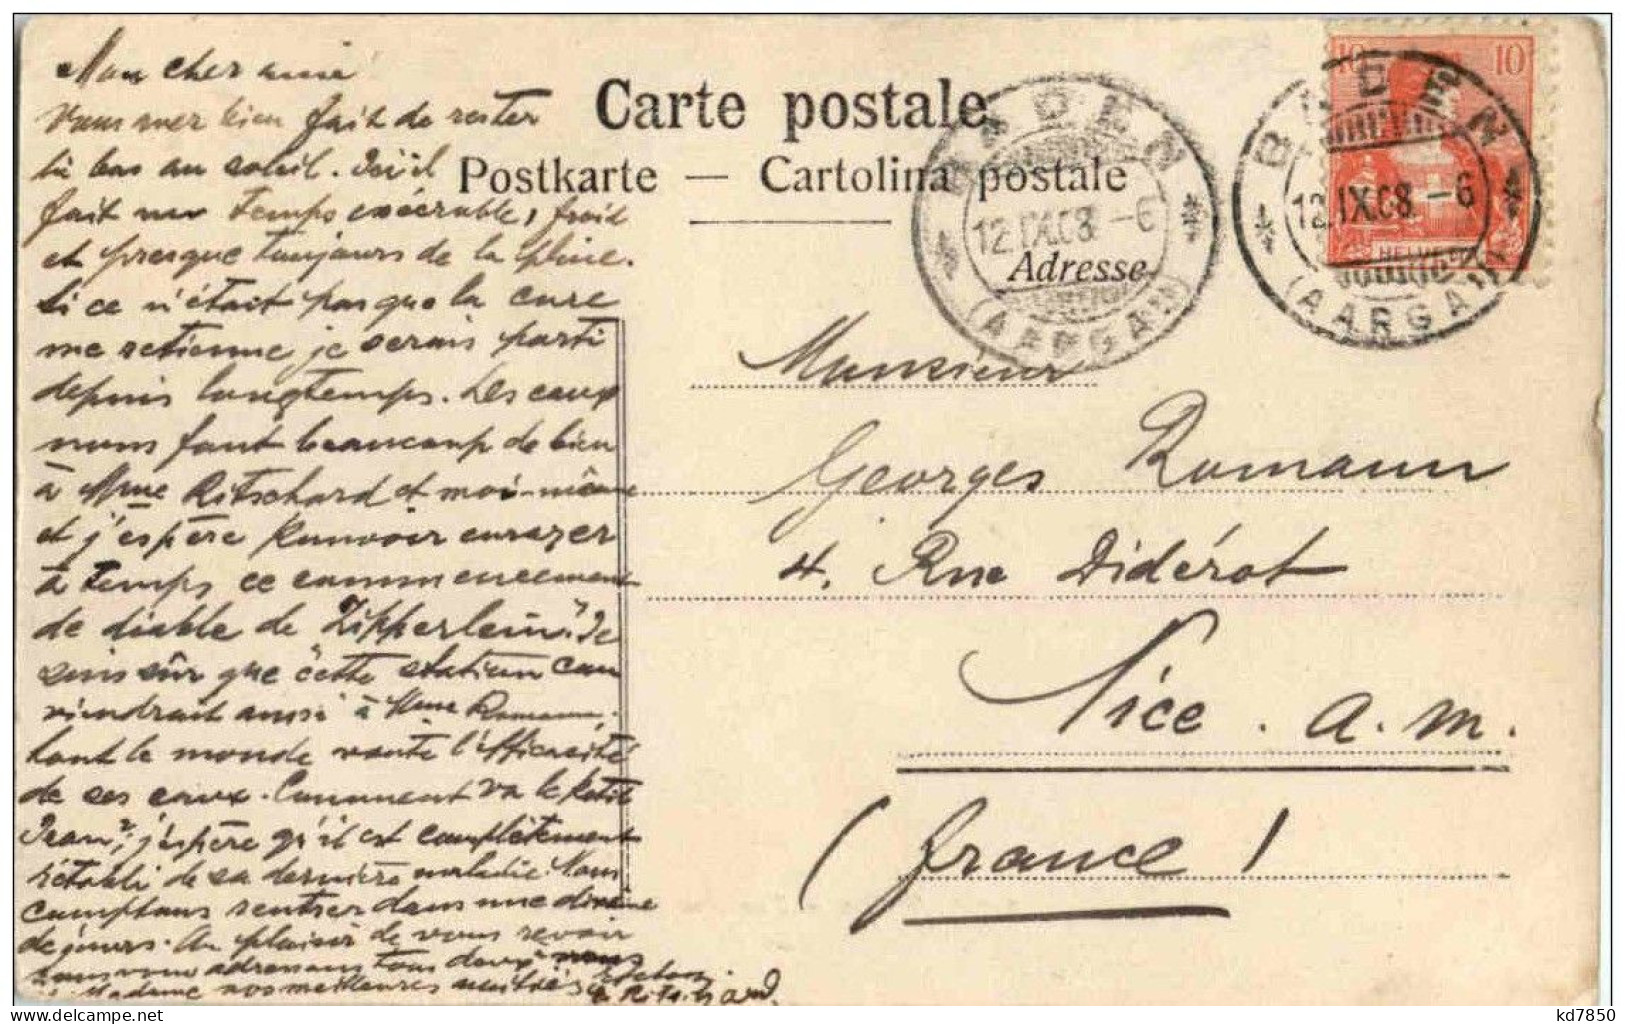 Mon cher ami
Vous avez bien fait de rester
là bas au soleil. Ici il
fait un temps exécrable, froid
et presque toujours de la pluie.
Si ce n'était pas que la cure
me retienne je serais parti
depuis longtemps. Les eaux
nous font beaucoup de bien
à Mme Ritschard et moi-même
et j'espère pouvoir enrayer
à temps ce commencement
de diable de "Zipperlein". Je
suis sûr que cette station con
viendrait aussi à Mme Romann,
tout le monde vante l'efficacité
de ses eaux. Comment va le petit
Jean?, j'espère qu'il est complètement
rétabli de sa dernière maladie. Nous
comptons rentrer dans une dizaine
de jours. Au plaisir de vous revoir
nous vous adressons tous deux
Madame nos meilleures amitiés
Ritschard.
Carte postale
Postkarte — Cartolina postale
Adresse
BADEN
12.IX.08 -6
(AARGAU)
BADEN
12.IX.08 -6
(AARGAU)
10 10
HELVETIA
Monsieur
Georges Romann
4. Rue Didérot
Nice . A. M.
(France)
kd7850